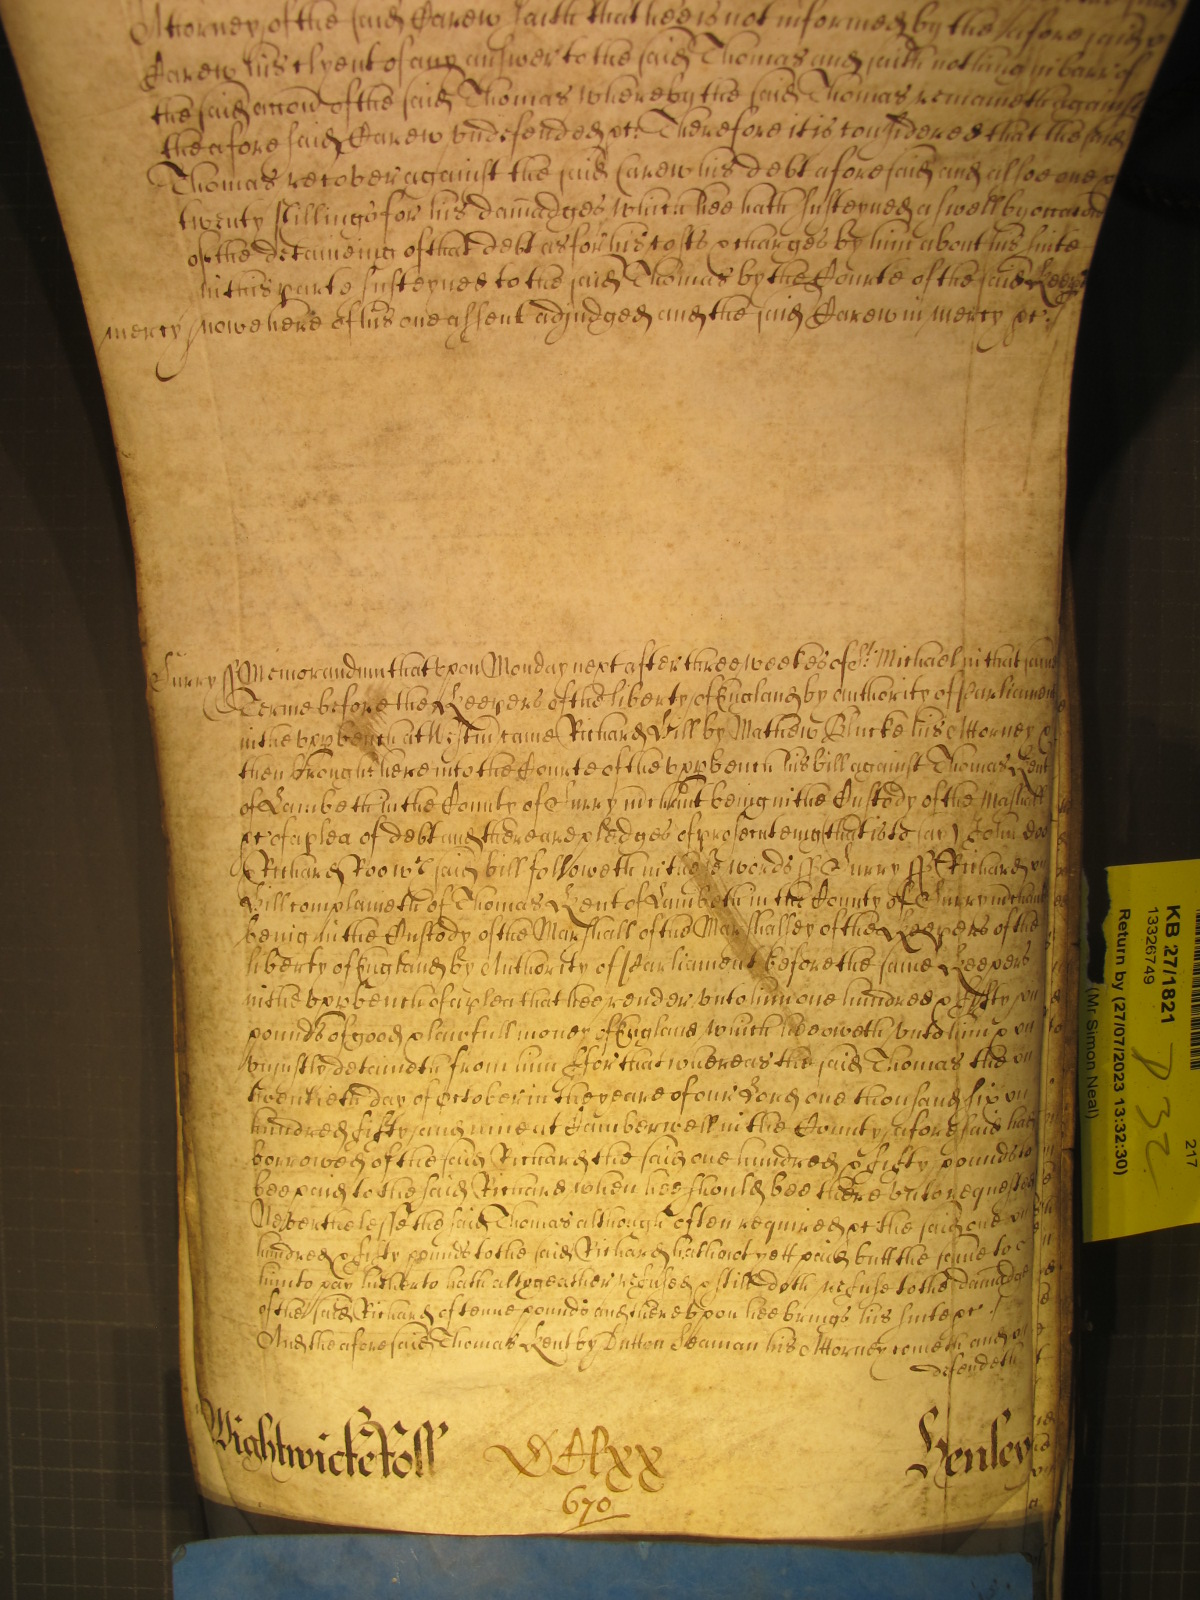 Attorney of the said Carew saith that hee is not informed by the aforesaid
Carew his clyent of any answer to the said Thomas and saith nothing in barr of
the said accon of the said Thomas whereby the said Thomas remaineth against
the aforesaid Carew vndefended &c. Therefore it is considered that the said
Thomas recover against the said Carew his debt aforesaid and alsoe one &
twenty shillings for his damadges which hee hath susteyned aswell by occacon
of the detaineing of that debt as for his costs & charges by him about his suite
in this parte susteyned to the said Thomas by the Courte of the said Keepers
mercy nowe here of his one assent adjudged and the said Carew in mercy &c.
Surry ss Memorandum that vpon Monday next after three weekes of St. Michael in that same
Terme before the Keepers of the liberty of England by authority of Parliament
in the vpper bench at Westm came Richard Hill by Mathew Blucke his Attorney &
then brought here into the Courte of the vpper bench his bill against Thomas Kent
of Lambeth in the County of Surry mchant being in the Custody of the Mashall
&c of a plea of debt and there are pledges of prosecuteing (that is to say) John doo
Richard Roo wch said bill followeth in these words ss Surry ss Richard
Hill complaineth of Thomas Kent of Lambeth in the County of Surry mchant
being in the Custody of the Marshall of the Marshalsey of the Keepers of the
liberty of England by Authority of Parliament before the same Keepers
in the vpper bench of a plea that hee render vnto him one hundred & fifty
pounds of good & lawfull money of England which hee oweth vnto him &
vnjustly detaineth from him for that whereas the said Thomas the
twentieth day of October in the yeare of our Lord one thousand six
hundred fifty and nine at Camberwell in the County aforesaid had
borrowed of the said Richard the said one hundred & fifty pounds to
bee paid to the said Richard when hee should bee there vnto requested
Neverthelesse the said Thomas although often required &c the said one
hundred & fifty pounds to the said Richard hath not yett paid butt the same to
him to pay hitherto hath altogeather refused & still doth refuse to the damadge
of the said Richard of tenne pounds and therevpon hee brings his suite &c.
And the aforesaid Thomas Kent by Dutton Seaman his Attorney cometh and
defendeth
Wightwicke Roll DClxx Henley
670
KB 27/1821
13326749
217
P 32
Return by (27/07/2023 13:32:30)
(Mr Simon Neal)